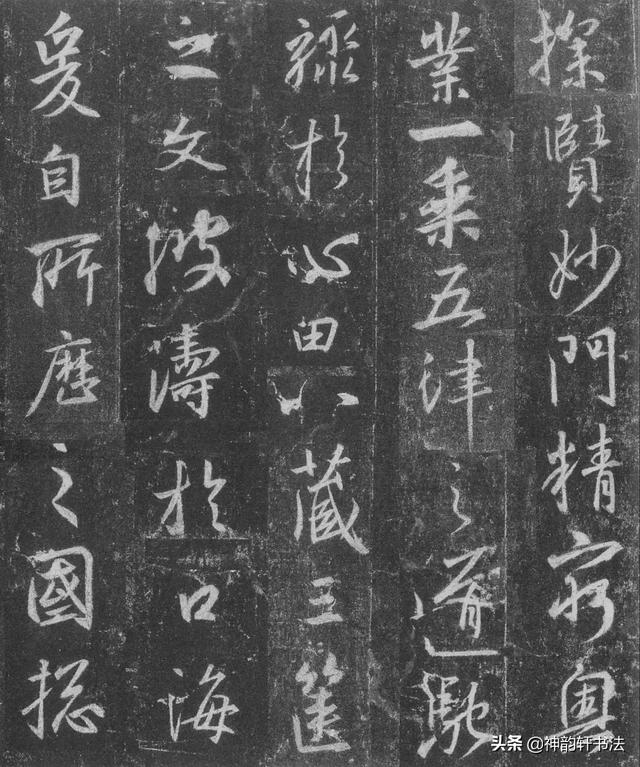 探賾妙門精窮奧
業一乘五律之道馳
驟於心田八藏三篋
之文波濤於口海
爰自所歷之國揔
头条 @神韵轩书法